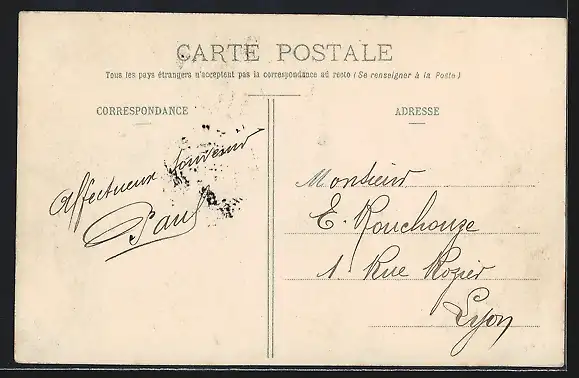 CARTE POSTALE
Tous les pays étrangers n'acceptent pas la correspondance au recto (Se renseigner à la Poste)
CORRESPONDANCE
Affectueux souvenir
Paul
ADRESSE
Monsieur
E. Rouchouze
1. Rue Rozier
Lyon